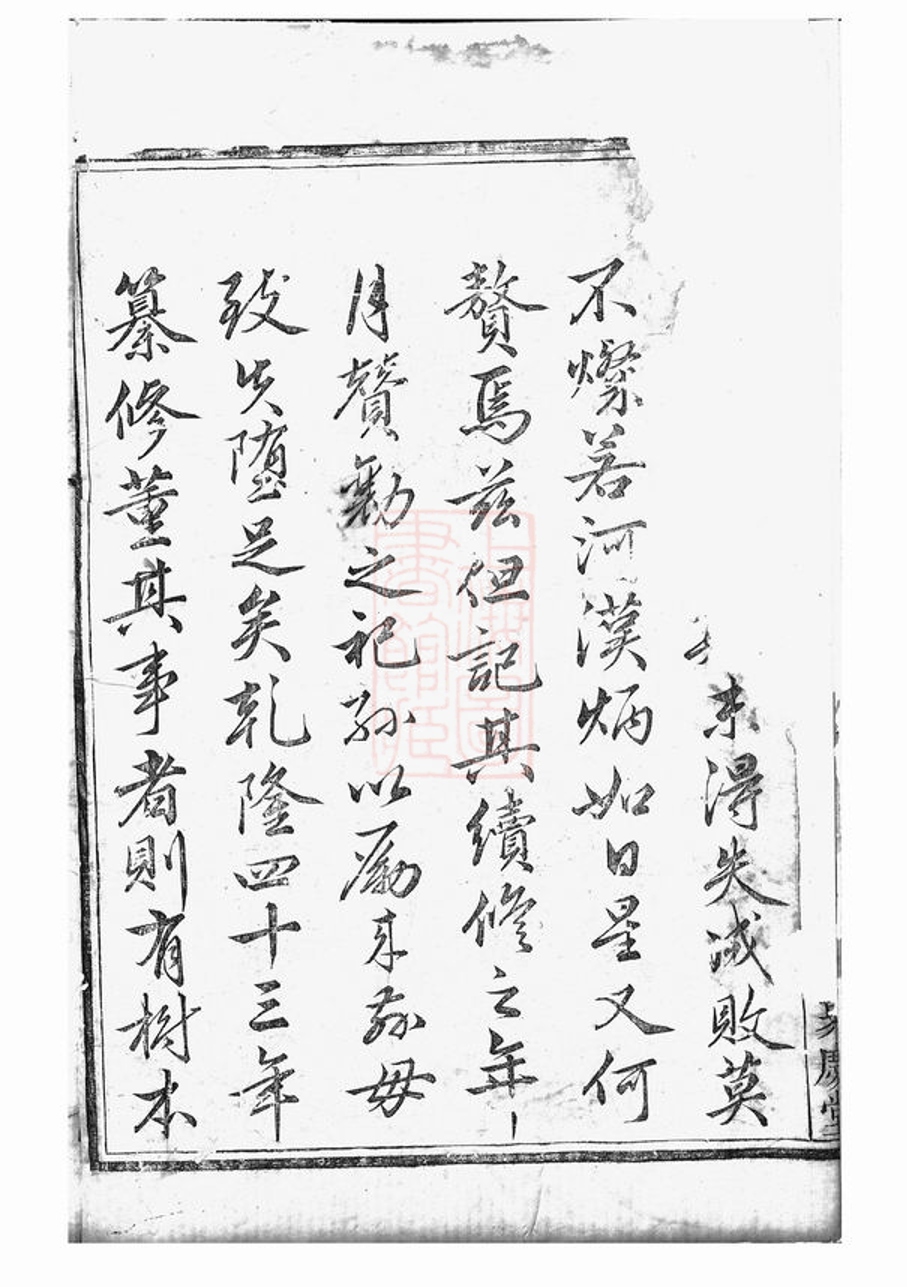 末得失成敗莫
不燦若河漢炳如日星又何
贅焉茲但記其續修之年
月贊勷之祀孫以勵來茲毋
致失墮足矣乾隆四十三年
纂修董其事者則有樹本
慶堂